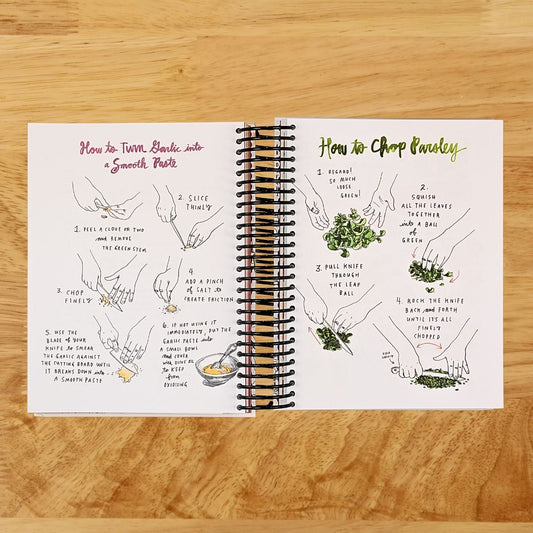 How to Turn Garlic into
a Smooth Paste
1. PEEL A CLOVE OR TWO
and REMOVE
THE GREEN STEM
2. SLICE
THINLY
3. CHOP
FINELY
4.
ADD A PINCH
of SALT to
CREATE FRICTION
5. USE THE
BLADE of YOUR
KNIFE to SMEAR
THE GARLIC AGAINST
THE CUTTING BOARD UNTIL
IT BREAKS DOWN into
A SMOOTH PASTE
6. IF NOT USING IT
IMMEDIATELY, PUT THE
GARLIC PASTE into
A SMALL BOWL
and COVER
with OLIVE OIL
to KEEP
from
OXIDIZING
How to Chop Parsley
1. REGARD!
SO MUCH
LOOSE
GREEN!
2.
SQUISH
ALL THE LEAVES
TOGETHER
into A BALL
of
GREEN
3. PULL KNIFE
THROUGH
THE LEAF
BALL
4. ROCK THE KNIFE
BACK and FORTH
UNTIL IT'S ALL
FINELY
CHOPPED